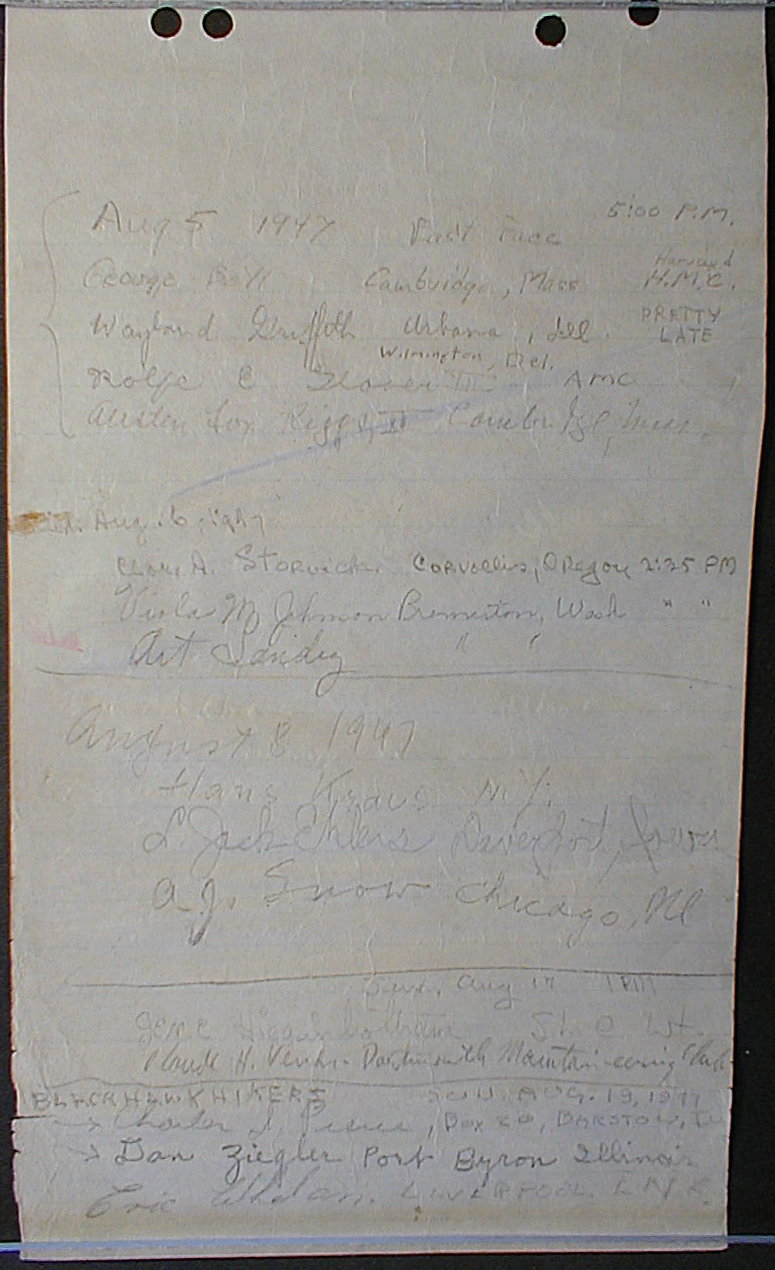 5:00 P.M.
Aug 5 1947 East Face
Harvard
George Bell Cambridge, Mass H.M.C.
Wayland Griffith Urbana, Ill. PRETTY LATE
Wilmington, Del.
Rolfe E Glover III AMC
Austen Fox Riggs, II Cambridge, Mass.
Aug. 6, 1947
A. Storvick Corvallis, Oregon 2:25 PM
Viola M Johnson Bremerton, Wash " "
Art " "
August 8 1947
Hans Kraus N.Y.
L. Jack Ehlers Davenport, Iowa
A.J. Snow Chicago, Ill
Aug 17 1 PM
Gene Higginbotham
Claude H. Dartmouth Mountaineering Club
BLACKHAWK HIKERS AUG. 19, 1947
→ Charles J. Box 20, BARSTOW, Ill
→ Dan Ziegler Port Byron Illinois
Eric LIVERPOOL.